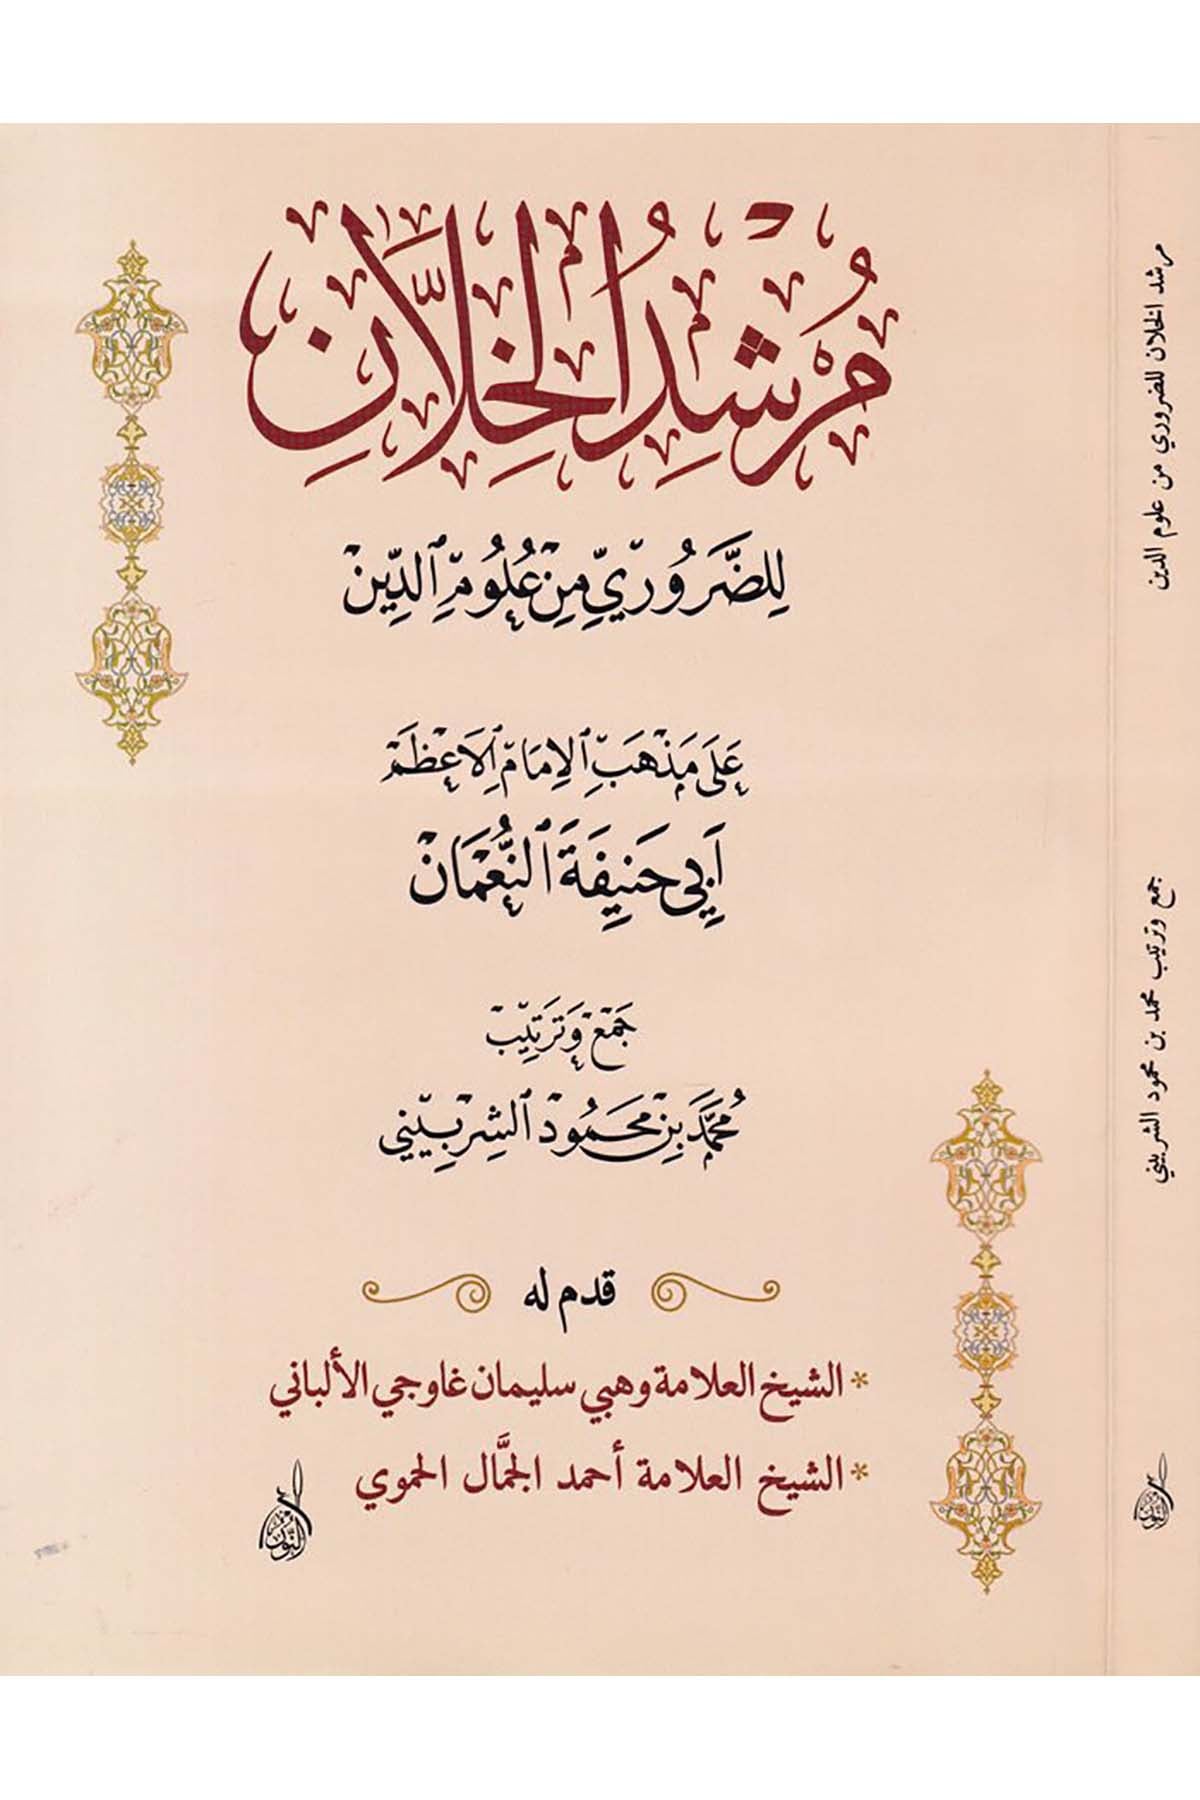 مُرْشِدُ الخِلَّانِ
لِلضَّرُورِيِّ مِنْ عُلُومِ الدِّينْ
عَلَى مَذْهَبِ الإِمَامِ الأَعْظَمْ
أَبِي حَنِيفَةَ النُّعْمَانْ
جَمْعُ وَتَرْتِيبْ
مُحَمَّدْ بِنْ مَحْمُودْ الشِرْبِيْنِي
قدم له
* الشيخ العلامة وهبي سليمان غاوجي الألباني
* الشيخ العلامة أحمد الجمَّال الحموي
النُّور
مرشد الخلان للضروري من علوم الدين
جمع وترتيب محمد بن محمود الشربيني
النُّور